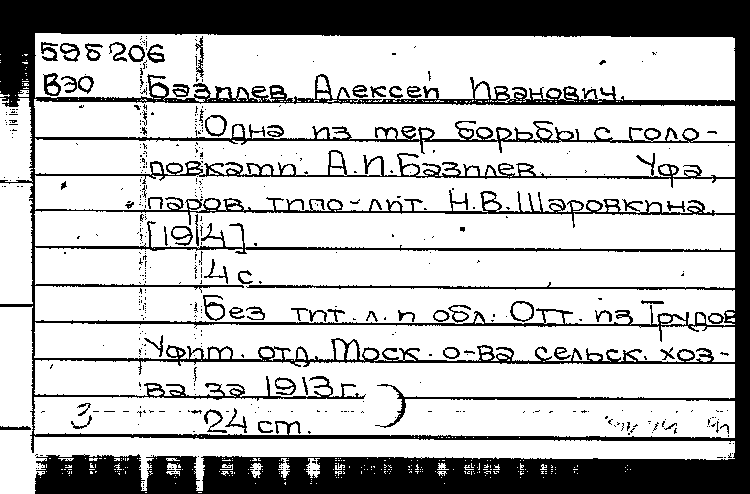 595206
ВЭО Базилев, Алексей Иванович.
Одна из мер борьбы с голо-
довками. А.И.Базилев. Уфа,
паров. типо-лит. Н.В.Шаровкина,
[1914].
4 с.
Без тит. л. и обл. Отт. из Трудов
Уфим. отд. Моск. о-ва сельск. хоз-
ва за 1913 г.
3 24 см.